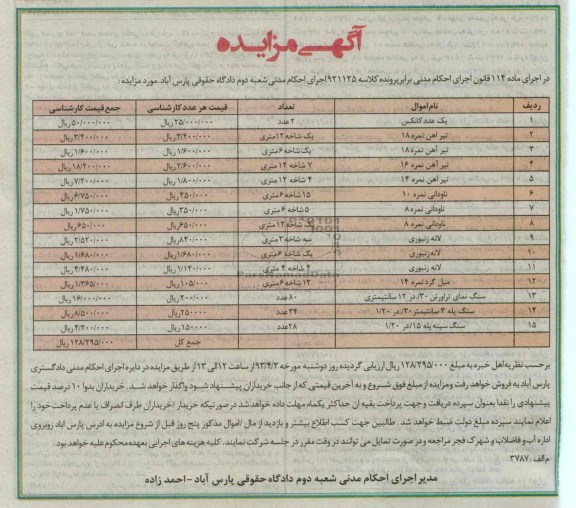 آگهی مزایده
در اجرای ماده ۱۱۴ قانون اجرای احکام مدنی برابر پرونده کلاسه ۹۲۱۱۲۵ اجرای احکام مدنی شعبه دوم دادگاه حقوقی پارس آباد مورد مزایده:
ردیف نام اموال تعداد قیمت هر عدد کارشناسی جمع قیمت کارشناسی
۱ یک عدد کانکس ۲ عدد ۲۵/۰۰۰/۰۰۰ ریال ۵۰/۰۰۰/۰۰۰ ریال
۲ تیر آهن نمره ۱۸ یک شاخه ۱۲ متری ۳/۴۰۰/۰۰۰ ریال ۳/۴۰۰/۰۰۰ ریال
۳ تیر آهن نمره ۱۸ یک شاخه ۶ متری ۱/۶۰۰/۰۰۰ ریال ۱/۶۰۰/۰۰۰ ریال
۴ تیر آهن نمره ۱۶ ۷ شاخه ۱۲ متری ۲/۶۰۰/۰۰۰ ریال ۱۸/۲۰۰/۰۰۰ ریال
۵ تیر آهن نمره ۱۴ ۴ شاخه ۱۲ متری ۱/۸۰۰/۰۰۰ ریال ۷/۲۰۰/۰۰۰ ریال
۶ ناودانی نمره ۱۰ ۱۵ شاخه ۶ متری ۴۵۰/۰۰۰ ریال ۶/۷۵۰/۰۰۰ ریال
۷ ناودانی نمره ۸ ۵ شاخه ۶ متری ۳۵۰/۰۰۰ ریال ۱/۷۵۰/۰۰۰ ریال
۸ ناودانی نمره ۸ یک شاخه ۱۲ متری ۶۵۰/۰۰۰ ریال ۶۵۰/۰۰۰ ریال
۹ لانه زنبوری سه شاخه ۳ متری ۸۴۰/۰۰۰ ریال ۲/۵۲۰/۰۰۰ ریال
۲۰ لانه زنبوری یک شاخه ۶ متری ۱/۶۸۰/۰۰۰ ریال ۱/۶۸۰/۰۰۰ ریال
۱۱ لانه زنبوری ۴ شاخه ۴ متری ۱/۱۲۰/۰۰۰ ریال ۴/۴۸۰/۰۰۰ ریال
۱۲ میل گرد نمره ۱۴ ۱۳ شاخه ۶ متری ۱۰۵/۰۰۰ ریال ۱/۳۶۵/۰۰۰ ریال
۱۳ سنگ نمای تراورتن ۳۰/ در ۱۲ سانتیمتری ۸۰ عدد ۲۰۰/۰۰۰ ریال ۱۶/۰۰۰/۰۰۰ ریال
۱۴ سنگ پله ۳ سانتیمتر ۳۰/ در ۱/۲۰ ۳۴ عدد ۲۵۰۰۰۰ ریال ۸/۵۰۰/۰۰۰ ریال
۱۵ سنگ سینه پله ۱۵/ در ۱/۲۰ ۲۸ عدد ۱۵۰۰۰۰ ریال ۴/۲۰۰/۰۰۰ ریال
جمع کل ۱۲۸/۲۹۵/۰۰۰ ریال
برحسب نظریه اهل خبره به مبلغ ۱۲۸/۲۹۵/۰۰۰ ریال ارزیابی گردیده روز دوشنبه مورخه ۹۳/۴/۲ از ساعت ۱۲ الی ۱۳ از طریق مزایده در دایره اجرای احکام مدنی دادگستری
پارس آباد به فروش خواهد رفت ومزایده از مبلغ فوق شروع و به آخرین قیمتی که از جانب خریداران پیشنهاد شود واگذار خواهد شد. خریداران بدوا ۱۰ درصد قیمت
پیشنهادی را نقدا بعنوان سپرده دریافت و جهت پرداخت بقیه ان حداکثر یکماه مهلت داده خواهد شد در صورتیکه خریدار /خریداران ظرف انصراف یا عدم پرداخت خود را
اعلام نمایند سپرده مبلغ دولت ضبط خواهد شد. طالبین جهت کسب اطلاع بیشتر و بازدید از مال /اموال مذکور پنج روز قبل از شروع مزایده به ادرس پارس آباد روبروی
اداره آب و فاضلاب و شهرک فجر مراجعه و در صورت تمایل می توانند در وقت مقرر در جلسه شرکت نمایند. کلیه هزینه های اجرایی بعهده محکوم علیه خواهد بود.
م الف: ۳۷۸۷
مدیر اجرای احکام مدنی شعبه دوم دادگاه حقوقی پارس آباد - احمد زاده
ParsNamadData